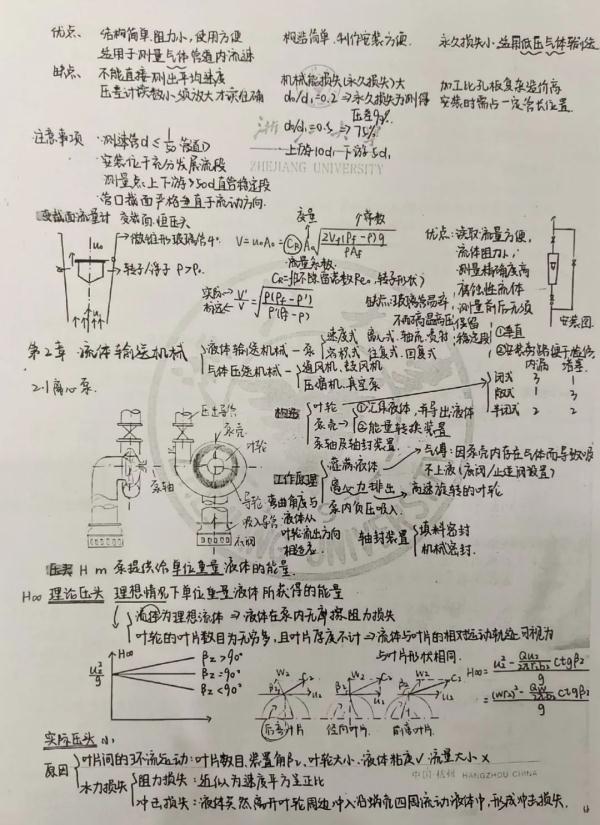 优点、 结构简单.阻力小,使用方便 构造简单.制作安装方便. 永久损失小.适用低压气体输送
适用于测量气体管道内流速
缺点、 不能直接测出平均速度 机械能损失(永久损失)大 加工比孔板复杂造价高
压差计读数小须放大才读准确 d₀/d₁=0.2 ⇒永久损失为测得 安装时需占一定管长位置
压差90%
d₀/d₁=0.5 ⇒ 75%
注意事项 ·测速管d ≤ 1/50 管道D 上游10d₁ 下游5d₁
ZHEJIANG UNIVERSITY
·安装位于充分发展流段
·测量点上下游>50d直管稳定段
·管口截面严格垂直于流动方向.
变截面流量计 变截面.恒压头 变量 个常数
→微锥形玻璃管4° V=u₀A₀=C_R A₀ √(2V_f(ρ_f-ρ)g / ρA_f) 优点:读取流量方便,
流体阻力小,
→转子/浮子 ρ>ρ₀. 流量系数 测量精确度高
C_R=f(不除雷诺数Re₀,转子形状) 腐蚀性流体
实际→ V'/V = √(ρ(ρ_f-ρ') / ρ'(ρ_f-ρ)) 缺点:玻璃管易碎, 测量前后无须
标定→ 不耐高温高压 保留稳定段 安装,图
①垂直
第2章 流体输送机械 液体输送机械-泵 速度式 离心式.轴流.
容积式 往复式.回复式
②安装旁路便于检修.
气体压送机械- 通风机.鼓风机
压缩机.真空泵
内漏 堵塞.
2.1离心泵. 闭式 3 1
构造 叶轮 ①汇集液体,并导出液体 敞式 1 3
泵壳→②能量转换装置 半闭式 2 2
泵轴及轴封装置
压出导管 泵壳 叶轮
工作原理 灌满液体→气缚:因泵壳内存在气体而导致吸
不上液(底阀/止逆阀装置)
泵轴 离心力排出→高速旋转的叶轮
泵内负压吸入.
导轮 弯曲角度与
吸入导管 液体从
底阀 叶轮流出方向
相适应. 轴封装置 填料密封
机械密封.
压头 H m 泵提供给单位重量液体的能量
H∞ 理论压头 理想情况下单位重量液体所获得的能量
流体为理想流体 ⇒液体在泵内无摩擦阻力损失
叶轮的叶片数目为无穷多,且叶片厚度不计⇒流体与叶片的相对运动轨迹可视为
与叶片形状相同.
u₂²/g H∞ β₂>90°
β₂=90°
β₂<90°
W₂ C₂ β₂ u₂
后弯叶片 径向叶片 前弯叶片
H∞ = (u₂² - Qu₂/2πr₂b₂ ctgβ₂)/g
= ((wr₂)² - QW/2πb₂ ctgβ₂)/g
实际压头 小
原因 叶片间的环流运动:叶片数目.装置角β₂.叶轮大小.液体粘度√ 流量大小×
水力损失 阻力损失:近似为速度平方呈正比
中国·杭州 HANGZHOU CHINA
冲击损失:液体突然离开叶轮周边冲入沿蜗壳四周流动液体中,形成冲击损失.
4